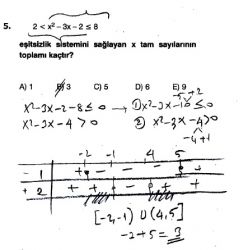 5. 2 < x²-3x-2 ≤ 8
eşitsizlik sistemini sağlayan x tam sayılarının
toplamı kaçtır?
A) 1 B) 3 C) 5 D) 6 E) 9
-5 +2
x²-3x-2-8≤0 → ① x²-3x-10≤0
x²-3x-4>0 ② x²-3x-4>0
-4+1
-2 -1 4 5
1 + - - - +
2 + + - + +
[-2,-1) U (4,5]
-2+5=3